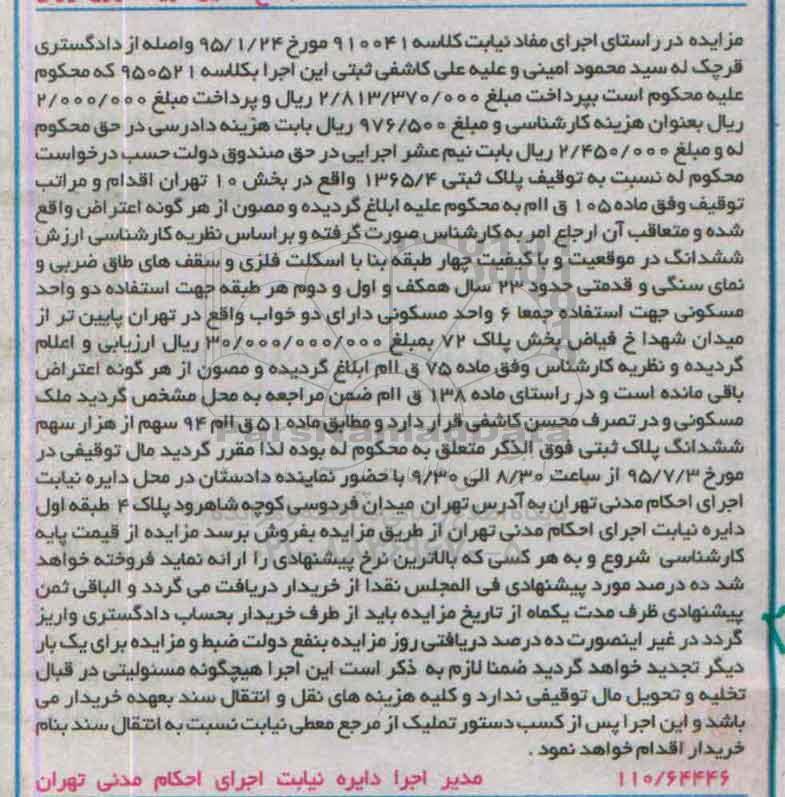 مزایده در راستای اجرای مفاد نیابت کلاسه ۹۱۰۰۴۱ مورخ ۹۵/۱/۲۴ واصله از دادگستری
قرچک له سید محمود امینی و علیه علی کاشفی ثبتی این اجرا بکلاسه ۹۵۰۵۲۱ که محکوم
علیه محکوم است بپرداخت مبلغ ۲/۸۱۳/۳۷۰/۰۰۰ ریال و پرداخت مبلغ ۲/۰۰۰/۰۰۰
ریال بعنوان هزینه کارشناسی و مبلغ ۹۷۶/۵۰۰ ریال بابت هزینه دادرسی در حق محکوم
له و مبلغ ۲/۴۵۰/۰۰۰ ریال بابت نیم عشر اجرایی در حق صندوق دولت حسب درخواست
محکوم له نسبت به توقیف پلاک ثبتی ۱۳۶۵/۴ واقع در بخش ۱۰ تهران اقدام و مراتب
توقیف وفق ماده ۱۰۵ ق اام به محکوم علیه ابلاغ گردیده و مصون از هر گونه اعتراض واقع
شده و متعاقب آن ارجاع امر به کارشناس صورت گرفته و بر اساس نظریه کارشناسی ارزش
ششدانگ در موقعیت و با کیفیت چهار طبقه بنا با اسکلت فلزی و سقف های طاق ضربی و
نمای سنگی و قدمتی حدود ۲۳ سال همکف و اول و دوم هر طبقه جهت استفاده دو واحد
مسکونی جهت استفاده جمعا ۶ واحد مسکونی دارای دو خواب واقع در تهران پایین تر از
میدان شهدا خ فیاض بخش پلاک ۷۲ بمبلغ ۳۰/۰۰۰/۰۰۰/۰۰۰ ریال ارزیابی و اعلام
گردیده و نظریه کارشناس وفق ماده ۷۵ ق اام ابلاغ گردیده و مصون از هر گونه اعتراض
باقی مانده است و در راستای ماده ۱۳۸ ق اام ضمن مراجعه به محل مشخص گردید ملک
مسکونی و در تصرف محسن کاشفی قرار دارد و مطابق ماده ۵۱ ق اام ۹۴ سهم از هزار سهم
ششدانگ پلاک ثبتی فوق الذکر متعلق به محکوم له بوده لذا مقرر گردید مال توقیفی در
مورخ ۹۵/۷/۳ از ساعت ۸/۳۰ الی ۹/۳۰ با حضور نماینده دادستان در محل دایره نیابت
اجرای احکام مدنی تهران به آدرس تهران میدان فردوسی کوچه شاهرود پلاک ۴ طبقه اول
دایره نیابت اجرای احکام مدنی تهران از طریق مزایده بفروش برسد مزایده از قیمت پایه
کارشناسی شروع و به هر کسی که بالاترین نرخ پیشنهادی را ارائه نماید فروخته خواهد
شد ده درصد مورد پیشنهادی فی المجلس نقدا از خریدار دریافت می گردد و الباقی ثمن
پیشنهادی ظرف مدت یکماه از تاریخ مزایده باید از طرف خریدار بحساب دادگستری واریز
گردد در غیر اینصورت ده درصد دریافتی روز مزایده بنفع دولت ضبط و مزایده برای یک بار
دیگر تجدید خواهد گردید ضمنا لازم به ذکر است این اجرا هیچگونه مسئولیتی در قبال
تخلیه و تحویل مال توقیفی ندارد و کلیه هزینه های نقل و انتقال سند بعهده خریدار می
باشد و این اجرا پس از کسب دستور تملیک از مرجع معطی نیابت نسبت به انتقال سند بنام
خریدار اقدام خواهد نمود .
۱۱۰/۶۴۴۴۶ مدیر اجرا دایره نیابت اجرای احکام مدنی تهران
ParsNamadData